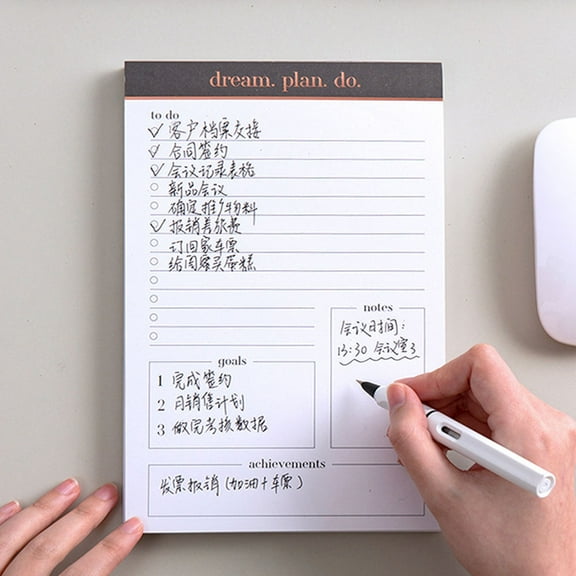 dream. plan. do.
to do
客户档案交接
合同签约
会议记录表格
新品会议
确定推广物料
报销差旅费
订回家车票
给周密买蛋糕
notes
会议时间：
13:30 会议室3
goals
1 完成签约
2 月销售计划
3 做完考核数据
achievements
发票报销（加油+车票）